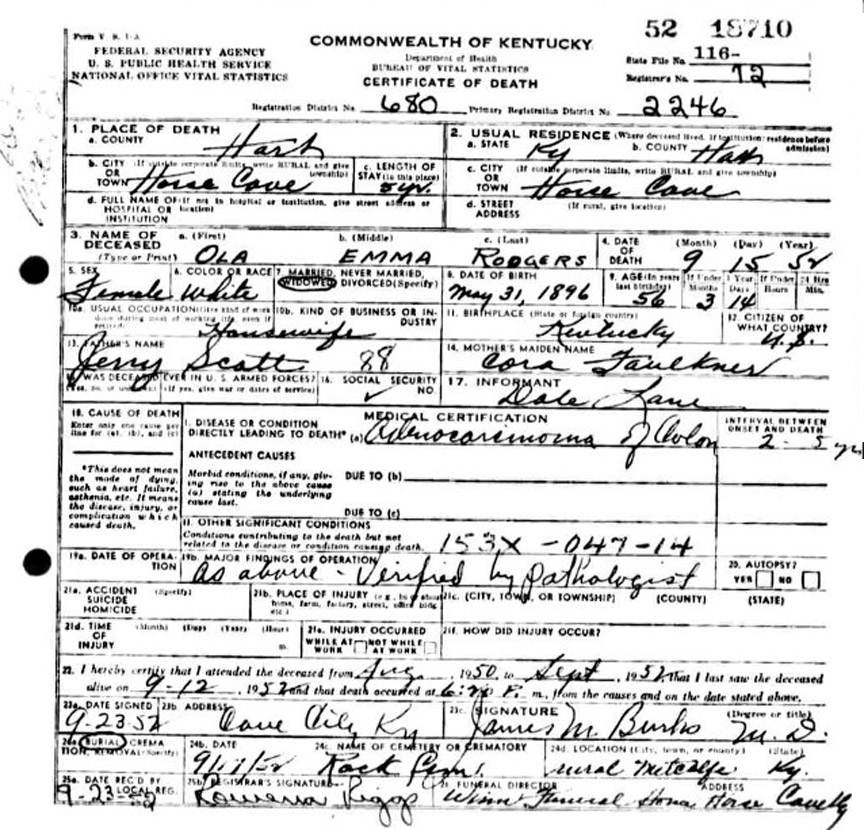 Form V. S. 1-A
52 18710
FEDERAL SECURITY AGENCY
U. S. PUBLIC HEALTH SERVICE
NATIONAL OFFICE VITAL STATISTICS
COMMONWEALTH OF KENTUCKY
Department of Health
BUREAU OF VITAL STATISTICS
CERTIFICATE OF DEATH
State File No. 116-
Registrar's No. 72
Registration District No. 680 Primary Registration District No. 2246
1. PLACE OF DEATH
a. COUNTY Hart
2. USUAL RESIDENCE (Where deceased lived. If institution: residence before admission)
a. STATE Ky b. COUNTY Hart
b. CITY (If outside corporate limits, write RURAL and give township)
OR
TOWN Horse Cave
c. LENGTH OF STAY (in this place)
5 yr.
c. CITY (If outside corporate limits, write RURAL and give township)
OR
TOWN Horse Cave
d. FULL NAME OF (If not in hospital or institution, give street address or location)
HOSPITAL OR
INSTITUTION
d. STREET ADDRESS (If rural, give location)
3. NAME OF DECEASED
(Type or Print)
a. (First) OLA
b. (Middle) EMMA
c. (Last) RODGERS
4. DATE OF DEATH (Month) (Day) (Year)
9 15 52
5. SEX Female
6. COLOR OR RACE White
7. MARRIED, NEVER MARRIED, WIDOWED, DIVORCED (Specify)
8. DATE OF BIRTH May 31, 1896
9. AGE (In years last birthday) 56
If Under 1 Year
Months 3 Days 14
If Under 24 Hrs
Hours Min.
10a. USUAL OCCUPATION (Give kind of work done during most of working life, even if retired)
Housewife
10b. KIND OF BUSINESS OR INDUSTRY
11. BIRTHPLACE (State or foreign country)
Kentucky
12. CITIZEN OF WHAT COUNTRY?
U.S.
13. FATHER'S NAME
Jerry Scott 88
14. MOTHER'S MAIDEN NAME
Cora Faulkner
15. WAS DECEASED EVER IN U. S. ARMED FORCES?
(Yes, no, or unknown) (If yes, give war or dates of service)
16. SOCIAL SECURITY NO.
17. INFORMANT
Dale Lane
18. CAUSE OF DEATH
Enter only one cause per line for (a), (b), and (c)
MEDICAL CERTIFICATION
INTERVAL BETWEEN ONSET AND DEATH
I. DISEASE OR CONDITION
DIRECTLY LEADING TO DEATH* (a) Adenocarcinoma of Colon
2-5 yrs
*This does not mean the mode of dying, such as heart failure, asthenia, etc. It means the disease, injury, or complication which caused death.
ANTECEDENT CAUSES
Morbid conditions, if any, giving rise to the above cause (a) stating the underlying cause last.
DUE TO (b)
DUE TO (c)
II. OTHER SIGNIFICANT CONDITIONS
Conditions contributing to the death but not related to the disease or condition causing death.
153X -047-14
19a. DATE OF OPERATION
19b. MAJOR FINDINGS OF OPERATION
as above - Verified by pathologist
20. AUTOPSY?
YES NO
21a. ACCIDENT (Specify)
SUICIDE
HOMICIDE
21b. PLACE OF INJURY (e.g., in or about home, farm, factory, street, office bldg etc.)
21c. (CITY, TOWN, OR TOWNSHIP) (COUNTY) (STATE)
21d. TIME OF INJURY (Month) (Day) (Year) (Hour)
m.
21e. INJURY OCCURRED
WHILE AT WORK NOT WHILE AT WORK
21f. HOW DID INJURY OCCUR?
22. I hereby certify that I attended the deceased from Aug, 1950, to Sept, 1952 that I last saw the deceased
alive on 9-12, 1952 and that death occurred at P. m., from the causes and on the date stated above.
23a. DATE SIGNED
9-23-52
23b. ADDRESS
Cave City Ky
23c. SIGNATURE (Degree or title)
James M. Burks M. D.
24a. BURIAL, CREMATION, REMOVAL (Specify)
24b. DATE
9/17/52
24c. NAME OF CEMETERY OR CREMATORY
Rock Cem.
24d. LOCATION (City, town, or county) (State)
rural Metcalfe Ky.
25a. DATE REC'D BY LOCAL REG.
9-23-52
25b. REGISTRAR'S SIGNATURE
Rowena Riggs
FUNERAL DIRECTOR ADDRESS
Winn Funeral Home Horse Cave Ky